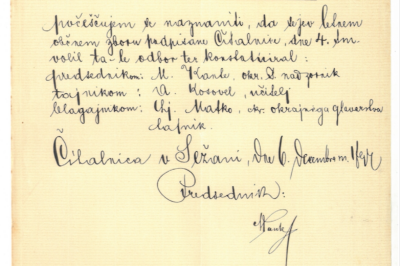 počeščujem se naznaniti, da se je v letnem
občnem zboru podpisane Čitalnice, dne 4. t.m.
volil ta-le odbor ter konstatiral:
predsednikom: M. Kante, okr. š. nadzornik
tajnikom: A. Kosovel, učitelj
blagajnikom: Matko, okrajnega glavarstva
tajnik.
Čitalnica v Sežani, dne 6. decembra
Predsednik: